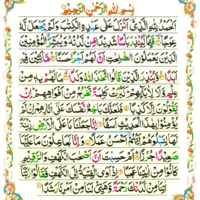 بِسْمِ اللهِ الرَّحْمٰنِ الرَّحِيْمِ
اَلْحَمْدُ لِلّٰهِ الَّذِيْٓ اَنْزَلَ عَلٰى عَبْدِهِ الْكِتٰبَ وَلَمْ يَجْعَلْ لَّهٗ
عِوَجًا قَيِّمًا لِّيُنْذِرَ بَاْسًا شَدِيْدًا مِّنْ لَّدُنْهُ وَيُبَشِّرَ الْمُؤْمِنِيْنَ
الَّذِيْنَ يَعْمَلُوْنَ الصّٰلِحٰتِ اَنَّ لَهُمْ اَجْرًا حَسَنًا مَّاكِثِيْنَ فِيْهِ
اَبَدًا وَّيُنْذِرَ الَّذِيْنَ قَالُوا اتَّخَذَ اللهُ وَلَدًا مَا لَهُمْ بِهٖ مِنْ
عِلْمٍ وَّلَا لِاٰبَآئِهِمْ كَبُرَتْ كَلِمَةً تَخْرُجُ مِنْ اَفْوَاهِهِمْ اِنْ
يَّقُوْلُوْنَ اِلَّا كَذِبًا فَلَعَلَّكَ بَاخِعٌ نَّفْسَكَ عَلٰٓى اٰثَارِهِمْ اِنْ لَّمْ
يُؤْمِنُوْا بِهٰذَا الْحَدِيْثِ اَسَفًا اِنَّا جَعَلْنَا مَا عَلَى الْاَرْضِ زِيْنَةً
لَّهَا لِنَبْلُوَهُمْ اَيُّهُمْ اَحْسَنُ عَمَلًا وَاِنَّا لَجٰعِلُوْنَ مَا عَلَيْهَا
صَعِيْدًا جُرُزًا اَمْ حَسِبْتَ اَنَّ اَصْحٰبَ الْكَهْفِ وَالرَّقِيْمِ كَانُوْا
مِنْ اٰيٰتِنَا عَجَبًا اِذْ اَوَى الْفِتْيَةُ اِلَى الْكَهْفِ فَقَالُوْا رَبَّنَآ
اٰتِنَا مِنْ لَّدُنْكَ رَحْمَةً وَّهَيِّئْ لَنَا مِنْ اَمْرِنَا رَشَدًا